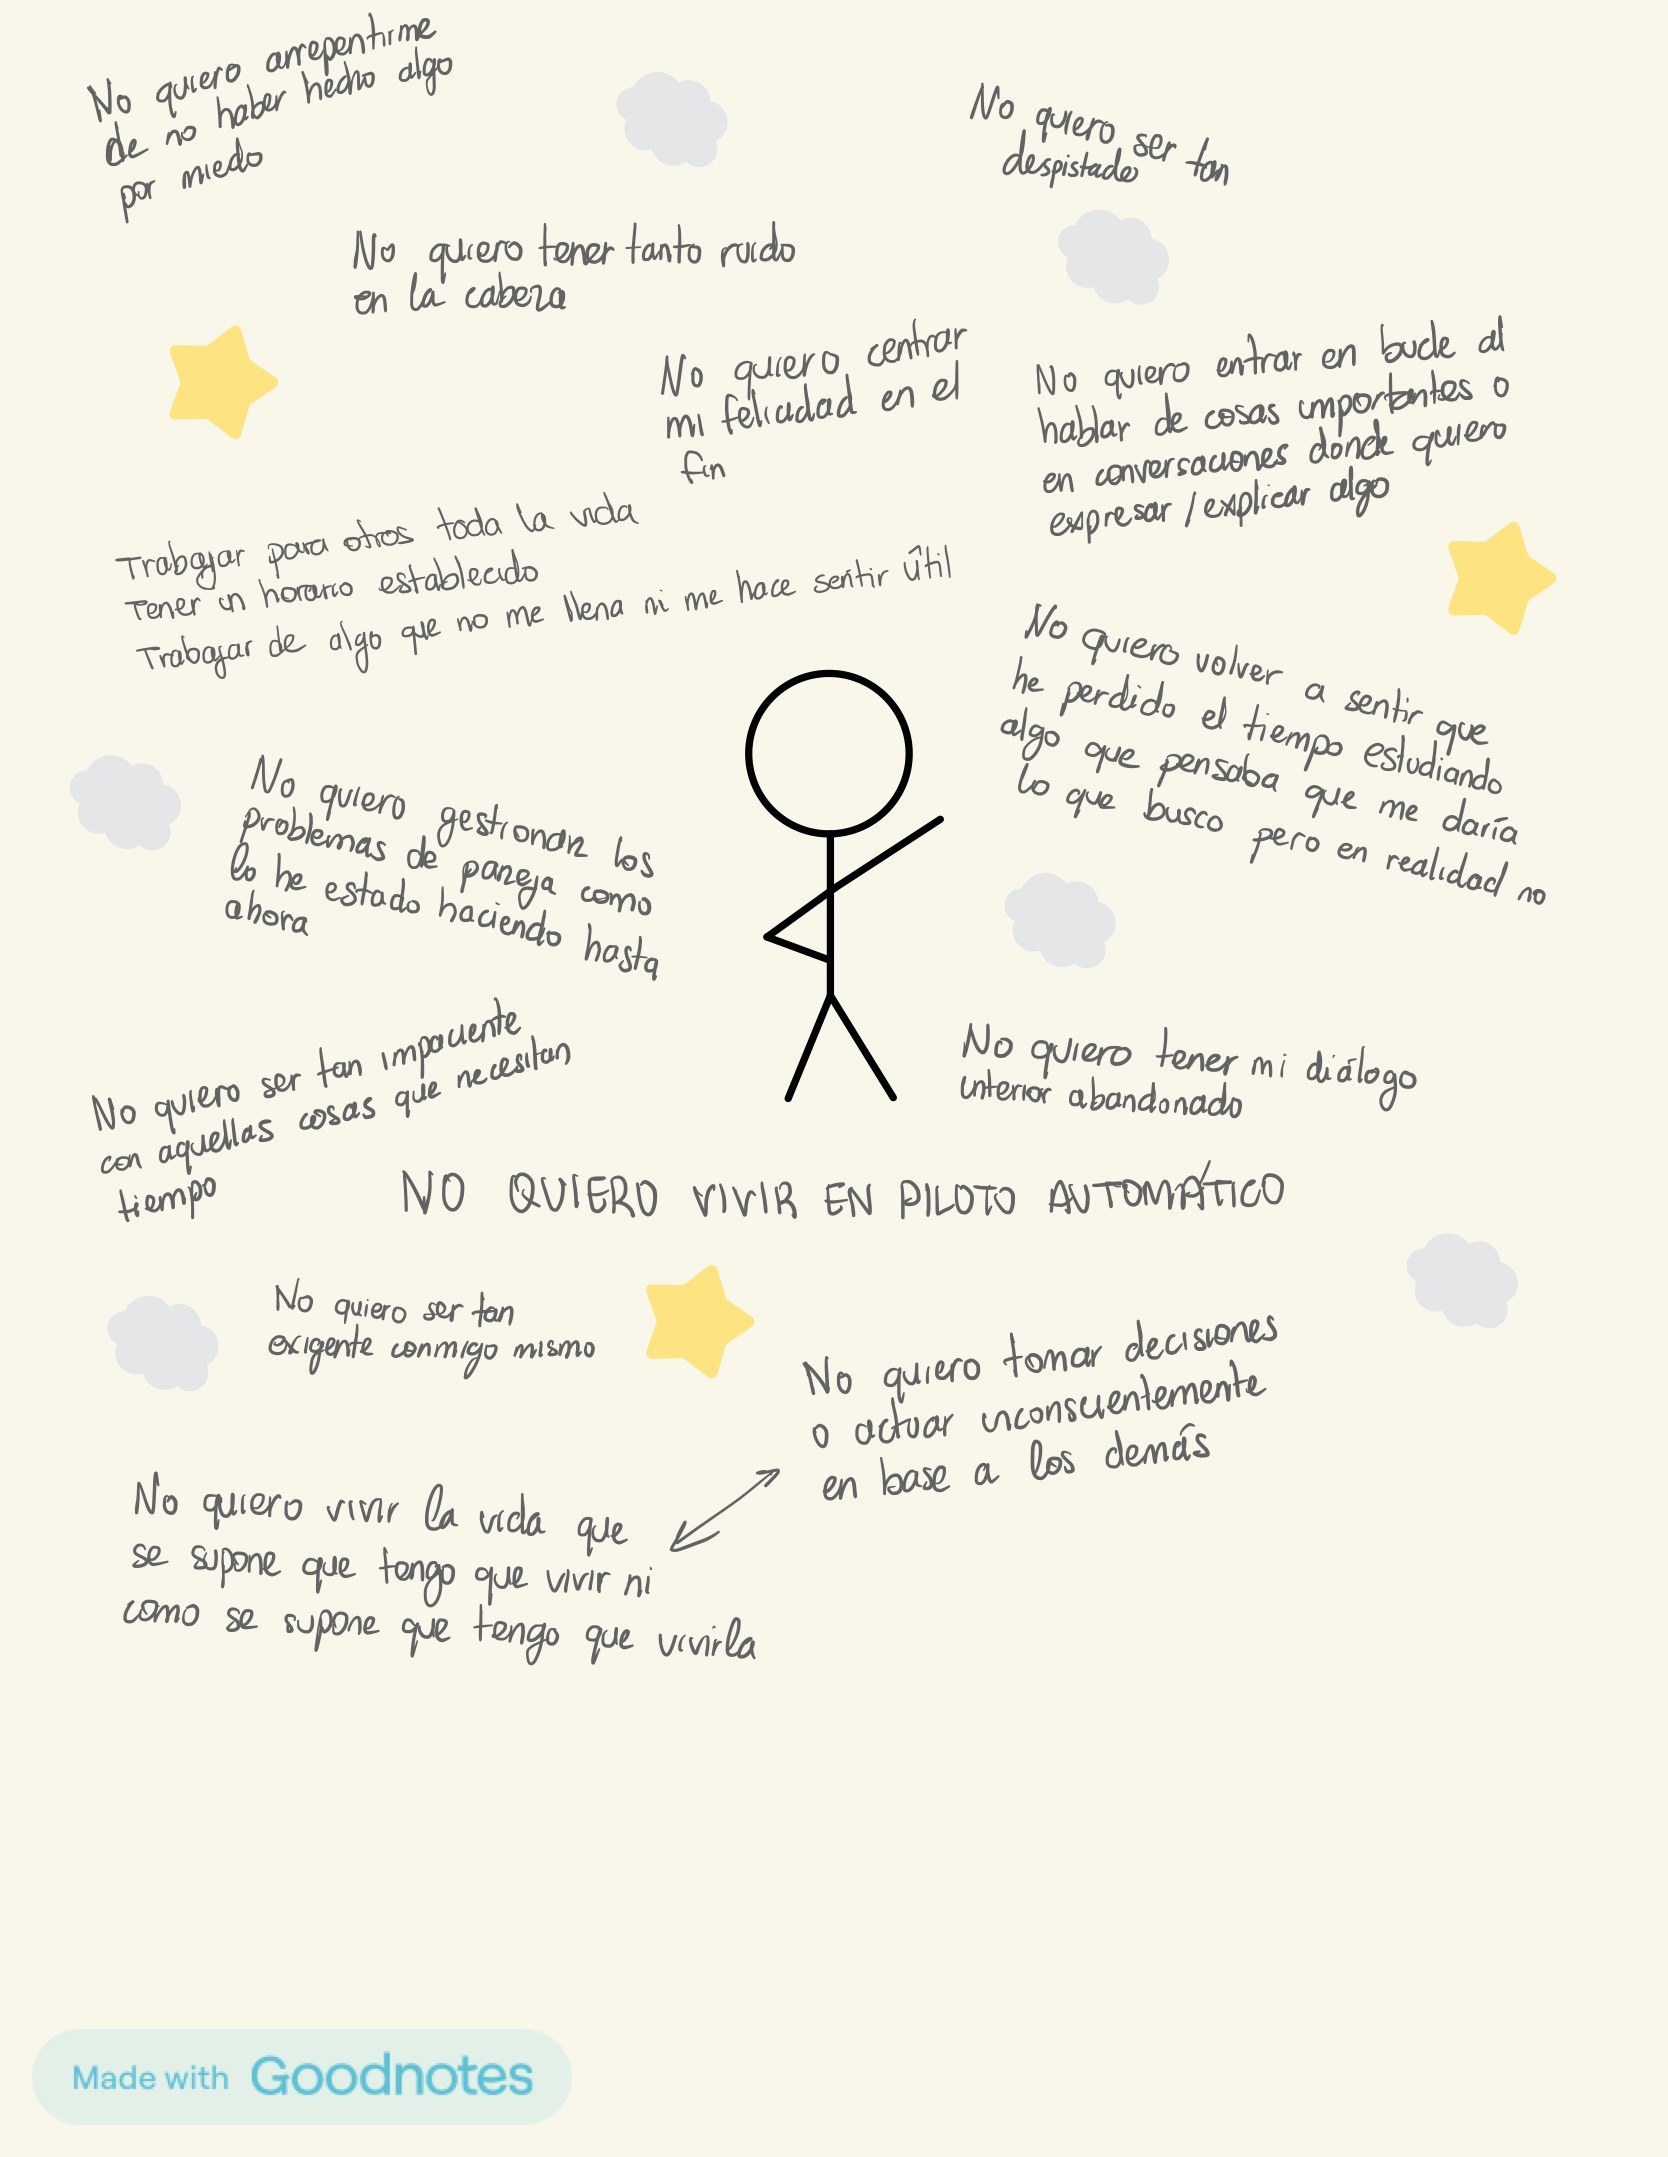 No quiero arrepentirme
de no haber hecho algo
por miedo
No quiero ser tan
despistado
No quiero tener tanto ruido
en la cabeza
No quiero centrar
mi felicidad en el
fin
No quiero entrar en bucle al
hablar de cosas importantes o
en conversaciones donde quiero
expresar / explicar algo
Trabajar para otros toda la vida
Tener un horario establecido
Trabajar de algo que no me llena ni me hace sentir útil
No quiero volver a sentir que
he perdido el tiempo estudiando
algo que pensaba que me daría
lo que busco pero en realidad no
No quiero gestionar los
problemas de pareja como
lo he estado haciendo hasta
ahora
No quiero ser tan impaciente
con aquellas cosas que necesitan
tiempo
No quiero tener mi diálogo
interior abandonado
NO QUIERO VIVIR EN PILOTO AUTOMÁTICO
No quiero ser tan
exigente conmigo mismo
No quiero tomar decisiones
o actuar inconscientemente
en base a los demás
No quiero vivir la vida que
se supone que tengo que vivir ni
como se supone que tengo que vivirla
Made with Goodnotes